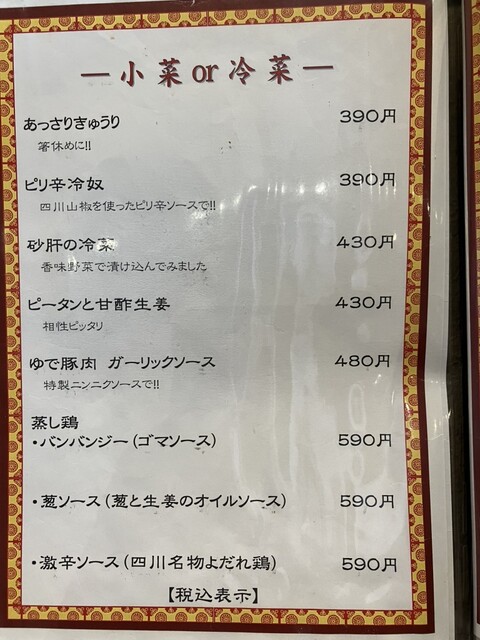 ―小菜or冷菜―
あっさりきゅうり 390円
箸休めに!!
ピリ辛冷奴 390円
四川山椒を使ったピリ辛ソースで!!
砂肝の冷菜 430円
香味野菜で漬け込んでみました
ピータンと甘酢生姜 430円
相性ピッタリ
ゆで豚肉 ガーリックソース 480円
特製ニンニクソースで!!
蒸し鶏
・バンバンジー(ゴマソース) 590円
・葱ソース(葱と生姜のオイルソース) 590円
・激辛ソース(四川名物よだれ鶏) 590円
【税込表示】